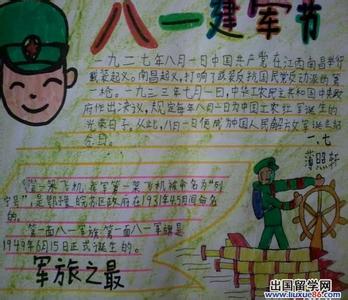 八一建军节
一九二七年八月一日中国共产党在江西南昌举行
武装起义。南昌起义，打响了武装反抗国民党反动派的第一
枪。一九三三年七月一日，中华工农民主共和国中央政
府作出决议，规定每年八月一日为中国工农红军诞生的
光荣日子。从此，八月一日便成为中国人民解放军诞生的
一、七
薄照轩
第一架飞机，我军第一架飞机被命名为“列
宁号”，是鄂豫皖苏区政府在1931年4
的。
第一面八一军旗：第一面八一军旗是
1949年6月15日正式诞生的。
军旅之最
出国留学网
www.liuxue86.com